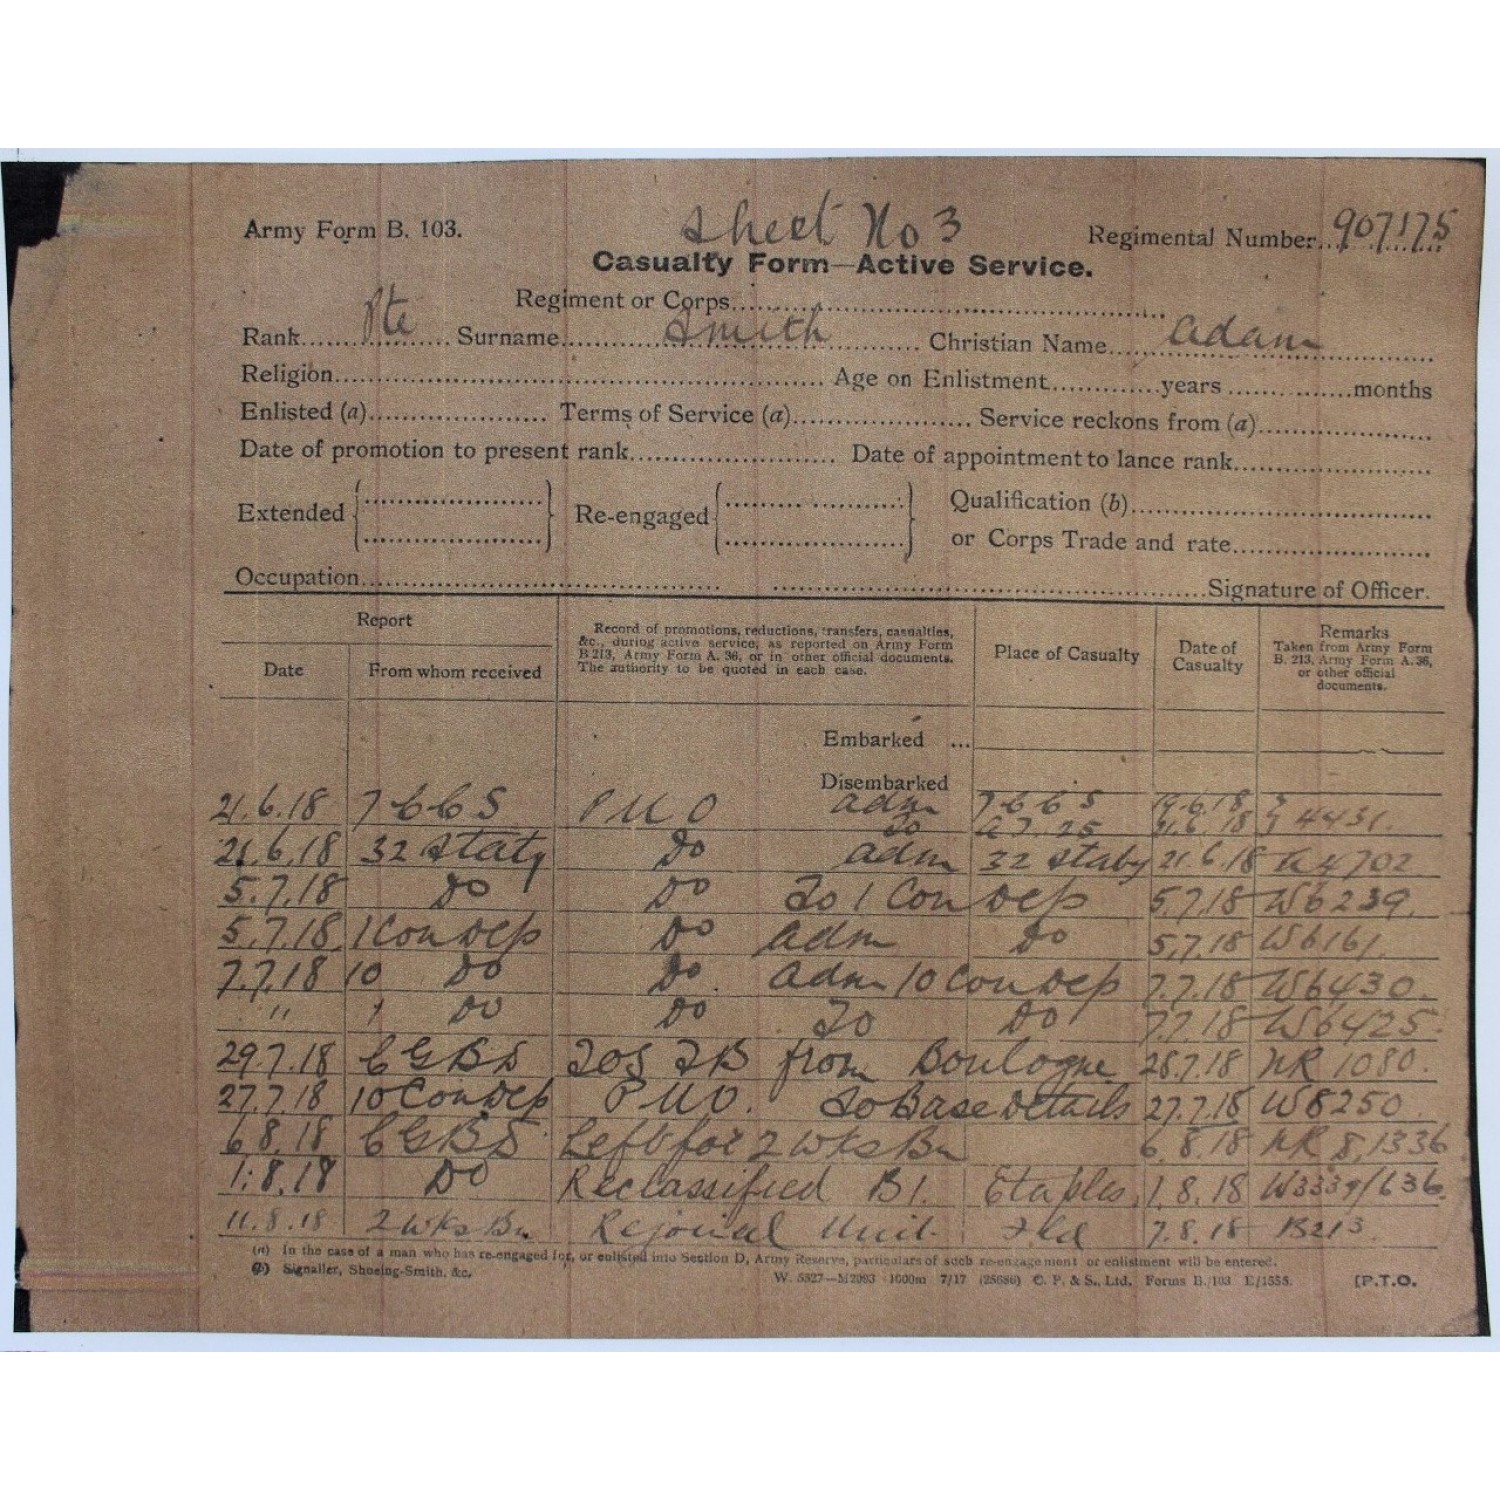 Sheet No 3
Army Form B. 103.
Regimental Number 907175
Casualty Form—Active Service.
Regiment or Corps
Rank Pte Surname Smith Christian Name Adam
Religion Age on Enlistment years months
Enlisted (a) Terms of Service (a) Service reckons from (a)
Date of promotion to present rank Date of appointment to lance rank
Extended Re-engaged Qualification (b)
or Corps Trade and rate
Occupation Signature of Officer.
Report
Date From whom received
Record of promotions, reductions, transfers, casualties, &c., during active service, as reported on Army Form B 213, Army Form A. 36, or in other official documents. The authority to be quoted in each case.
Place of Casualty
Date of Casualty
Remarks Taken from Army Form B. 213, Army Form A. 36, or other official documents.
Embarked ...
Disembarked
21.6.18 7 CCS PUO adm 7 CCS 19.6.18
To AT. 25 21.6.18 4431.
21.6.18 32 Staty Do adm 32 Staty 21.6.18 4702
5.7.18 Do Do To 1 Con Dep 5.7.18 W6239.
5.7.18 1 Con Dep Do adm Do 5.7.18 W6161.
7.7.18 10 Do Do. adm 10 Con Dep 7.7.18 W6430.
" 1 Do Do To Do 7.7.18 W6425.
29.7.18 CGBD TOS TB from Boulogne 28.7.18 NR 1080.
27.7.18 10 Con Dep PUO. To Base Details 27.7.18 W8250.
6.8.18 CGBD Left for 2 Wks Bn 6.8.18 NR 8,1336
1.8.18 Do Reclassified B1. Etaples, 1.8.18 W3339/636.
11.8.18 2 Wks Bn Rejoined Unit. Fld 7.8.18 B213
(a) In the case of a man who has re-engaged for, or enlisted into Section D, Army Reserve, particulars of such re-engagement or enlistment will be entered.
(b) Signaller, Shoeing-Smith, &c.
W. 5527—M2093 1000m 7/17 (25686) C. P. & S., Ltd. Forms B./103 E/1355. [P.T.O.